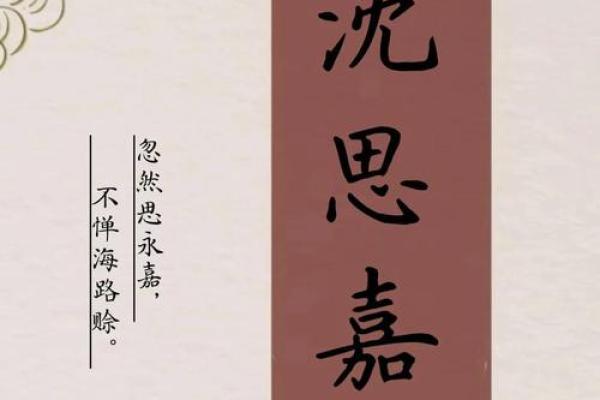 沈思嘉
忽然思永嘉，
不惮海路赊。